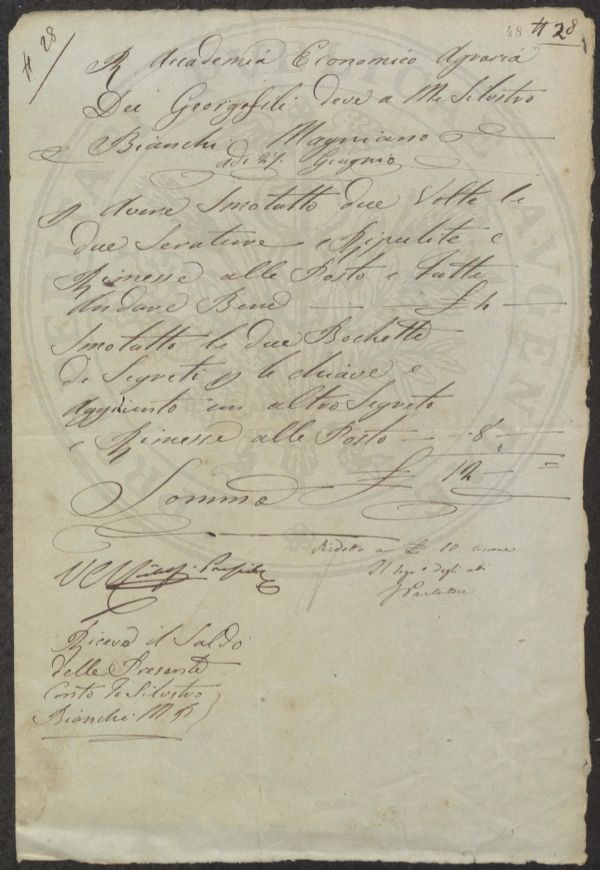 # 28
48 # 28
R. Accademia Economico Agraria
Dei Georgofili deve a Me Silvstro
Bianchi Magniano
adi 27. Giugnio
p avere Smotatto due Volte le
due Serature e Ripulite e
Rimesse alle Posto e tutte
Andare Bene — £ 4 —
Smotatto le due Bochette
di Segreti p le chiave e
Aggiunto un altro Segreto
e Rimesse alle Posto — 8 —
Somma £ 12 —
Ridotto a £ 10 toscane
Il Seg. degli atti
Riceve il Saldo
delle Presente
Conto Io Silvstro
Bianchi M P